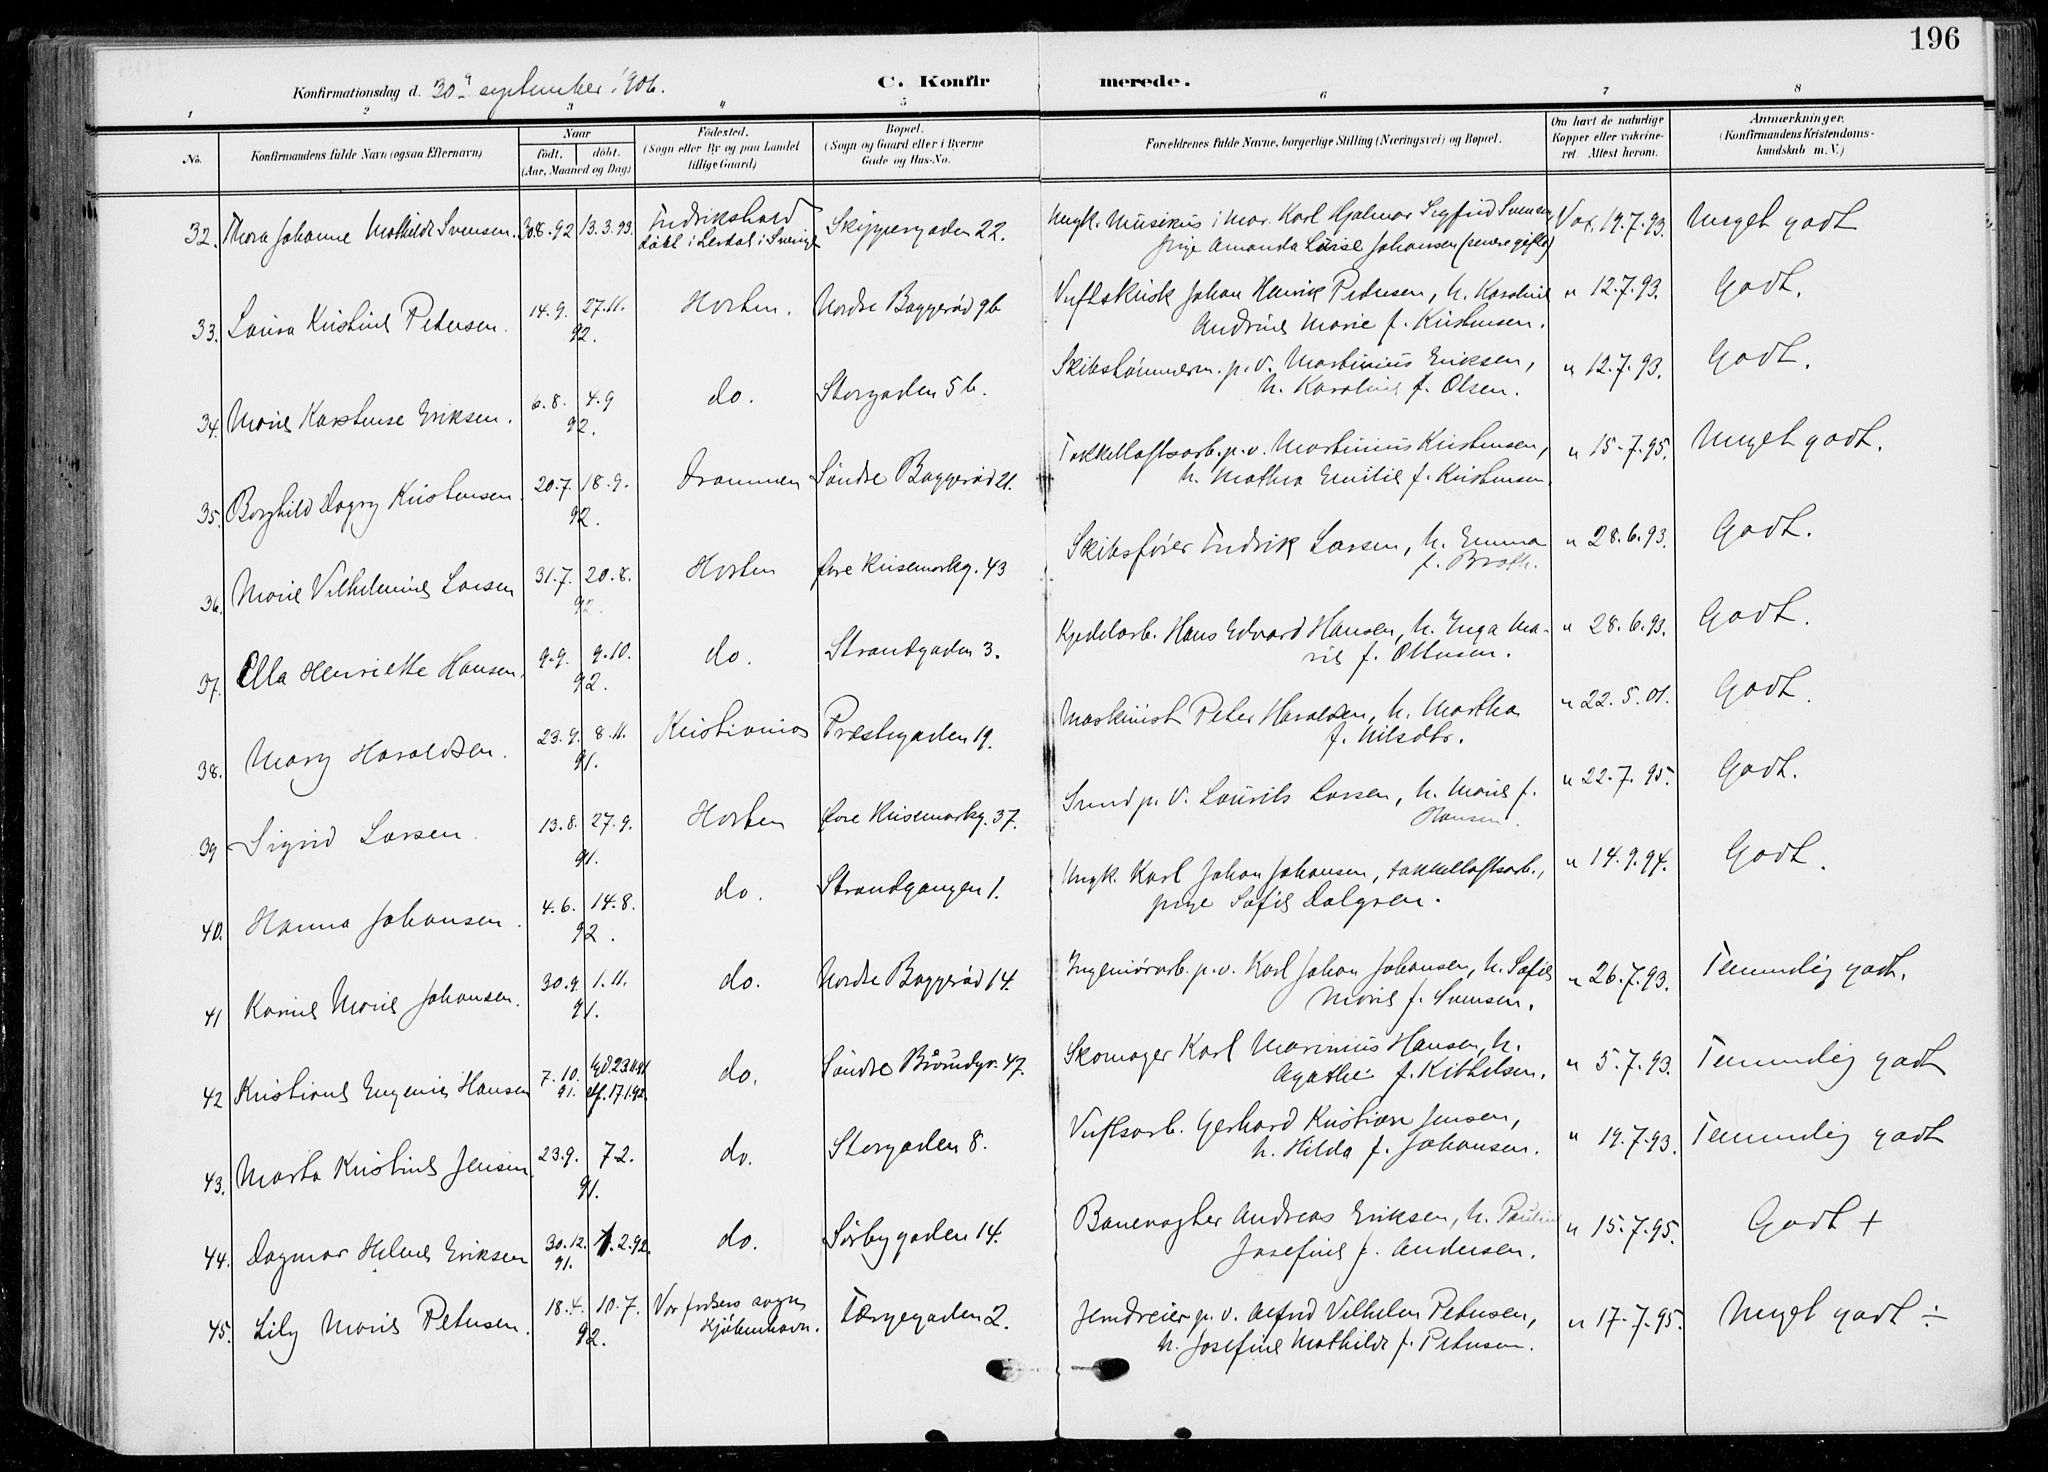 196
Konfirmationsdag d. 30te september 1906.
C. Konfirmerede.
1 2 3 4 5 6 7 8
No. | Konfirmandens fulde Navn (ogsaa Efternavn) | Naar født. | døbt. (Aar, Maaned og Dag) | Fødested. (Sogn eller By og paa Landet tillige Gaard) | Bopæl. (Sogn og Gaard eller i Byerne Gade og Hus-No. | Forældrenes fulde Navne, borgerlige Stilling (Næringsvei) og Bopæl. | Om havt de naturlige Kopper eller vakcineret. Attest herom. | Anmærkninger. (Konfirmandens Kristendomskundskab m. V.)
32. Thora Johanne Mathilde Svensen. 30.8.92 13.3.93. Fredrikshald døbt i Lerdal i Sverige Skippergaden 22. Ungk. Musikus i Mar. Karl Hjalmar Sigfrid Svensen
pige Amanda Lovise Johansen (senere gift) Vax. 19.7.93. Meget godt
33. Laura Kristine Petersen. 14.9. 27.11. 92. Horten. Nordre Baggerød 9b Verftskusk Johan Henrik Petersen, h. Karoline
Andrine Marie f. Kristensen. " 12.7.93. Godt.
34. Marie Karstense Eriksen. 6.8. 4.9 92. do. Storgaden 5b. Skibstømmerm. p.v. Martinius Eriksen,
h. Karoline f. Olsen. " 12.7.93. Godt.
35. Borghild Dagny Kristensen. 20.7. 18.9. 92. Drammen Søndre Baggerød 21. Takkelloftsarb. p.v. Martinius Kristensen,
h. Mathea Emilie f. Kristensen. " 15.7.95. Meget godt.
36. Marie Vilhelmine Larsen 31.7. 20.8. 92. Horten Øvre Keisemarkg. 43 Skibsfører Fredrik Larsen, h. Emma
f. Brath. " 28.6.93. Godt.
37. Ella Henriette Hansen. 9.9. 9.10. 92. do. Strandgaden 3. Kjedelarb. Hans Edvard Hansen, h. Inga Ma-
rie f. Ottesen. " 28.6.93. Godt.
38. Mary Haraldsen. 23.9. 8.11. 91. Kristiania Præstegaden 19. Maskinist Peter Haraldsen, h. Martha
f. Nilsdtr. " 22.5.01. Godt.
39 Sigrid Larsen. 13.8. 27.9. 91. Horten Øvre Keisemarkg. 37. Smed p.v. Laurits Larsen, h. Marie f.
Hansen. " 22.7.95. Godt.
40. Hanna Johansen. 4.6. 14.8. 92. do. Strandgangen 1. Ungk. Karl Johan Johansen, takkelloftsarb.,
pige Sofie Dalgren. " 14.9.94. Godt.
41 Karine Marie Johansen. 30.9. 1.11. 91. do. Nordre Baggerød 14. Ingeniørarb. p.v. Karl Johan Johansen, h. Sofie
Marie f. Svensen. " 26.7.93. Temmelig godt.
42 Kristiane Eugenie Hansen 7.10. 91. hjd. 23.10.91 stf. 17.1.92. do. Søndre 47. Skomager Karl Marinius Hansen, h.
Agathe f. Kittelsen. " 5.7.93. Temmelig godt
43. Marta Kristine Jensen 23.9. 7.2. 91. do. Storgaden 8. Verftsarb. Gerhard Kristian Jensen,
h. Hilda f. Johansen. " 19.7.93. Temmelig godt
44. Dagmar Helene Eriksen 30.12. 91. 7.2.92. do. Sørbygaden 14. Banevogter Andreas Eriksen, h. Pauline
Josefine f. Andersen. " 15.7.95. Godt +
45. Lily Marie Petersen. 18.4. 10.7. 92. Vor frelsers sogn Kjøbenhavn. Færgegaden 2. Jerndreier p.v. Alfred Vilhelm Petersen,
h. Josefine Mathilde f. Petersen. " 17.7.95. Meget godt ÷